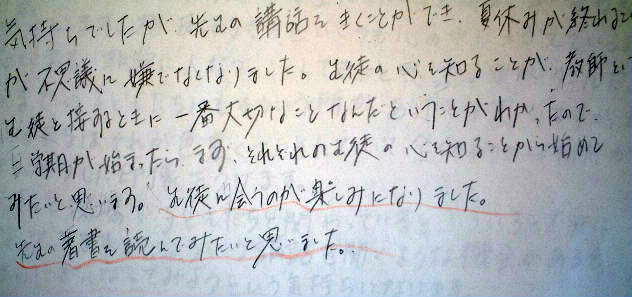 気持ちでしたが、先生の講話をきくことができ、夏休みが終わること
が不思議に嫌でなくなりました。生徒の心を知ることが、教師とし
生徒と接するときに一番大切なことなんだということがわかったので、
二学期が始まったら、まず、それぞれの生徒の心を知ることから始めて
みたいと思います。生徒に会うのが楽しみになりました。
先生の著書を読んでみたいと思いました。